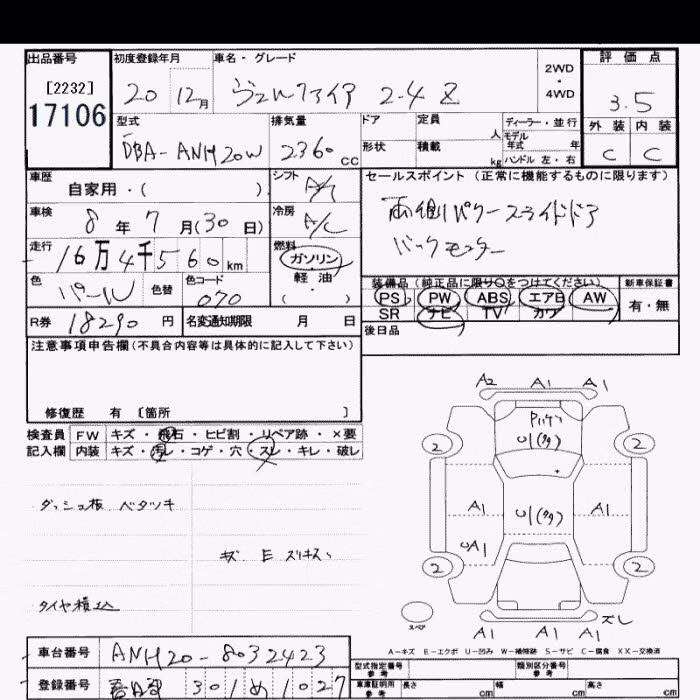 出品番号 初度登録年月 車名・グレード 2WD・4WD 評価点
[2232]
17106
20 12月 ヴェルファイア 2-4 Z 3.5
型式 排気量 ドア 定員 人 ディーラー・並行 外装 内装
モデル年式 年
DBA-ANH20W 2360cc 形状 積載 kg ハンドル 左・右 C C
車歴 シフト セールスポイント(正常に機能するものに限ります)
自家用・( )
車検 8年7月(30日) 冷房 A/C 両側パワースライドドア
走行 16万4千560km 燃料 ガソリン バックモニター
色 パール 色替 色コード 070 軽油
( )
装備品(純正品に限り○をつけてください) 新車保証書
PS PW ABS エアB AW 有・無
SR ナビ TV カワ
R券 18290円 名変通知期限 月 日 後日品
注意事項申告欄(不具合内容等は具体的に記入して下さい)
修復歴 有 [箇所 ]
検査員 FW キズ・飛石・ヒビ割・リペア跡・×要
記入欄 内装 キズ・汚レ・コゲ・穴・スレ・キレ・破レ
A2 A1 A1
U1(タタ)
2 2
ダッシュ板 ベタツキ
A1 U1(タタ) A1
UA1
キズ E
2 2
タイヤ積込
スペア A1 A1 スレ
A-キズ E-エクボ U-凹み W-補修跡 S-サビ C-腐食 XX-交換済
車台番号 ANH20-8032423
型式指定番号 参考 類別区分番号 参考
登録番号 301 め 1027
車庫証明用 参考 長さ cm 幅 cm 高さ cm